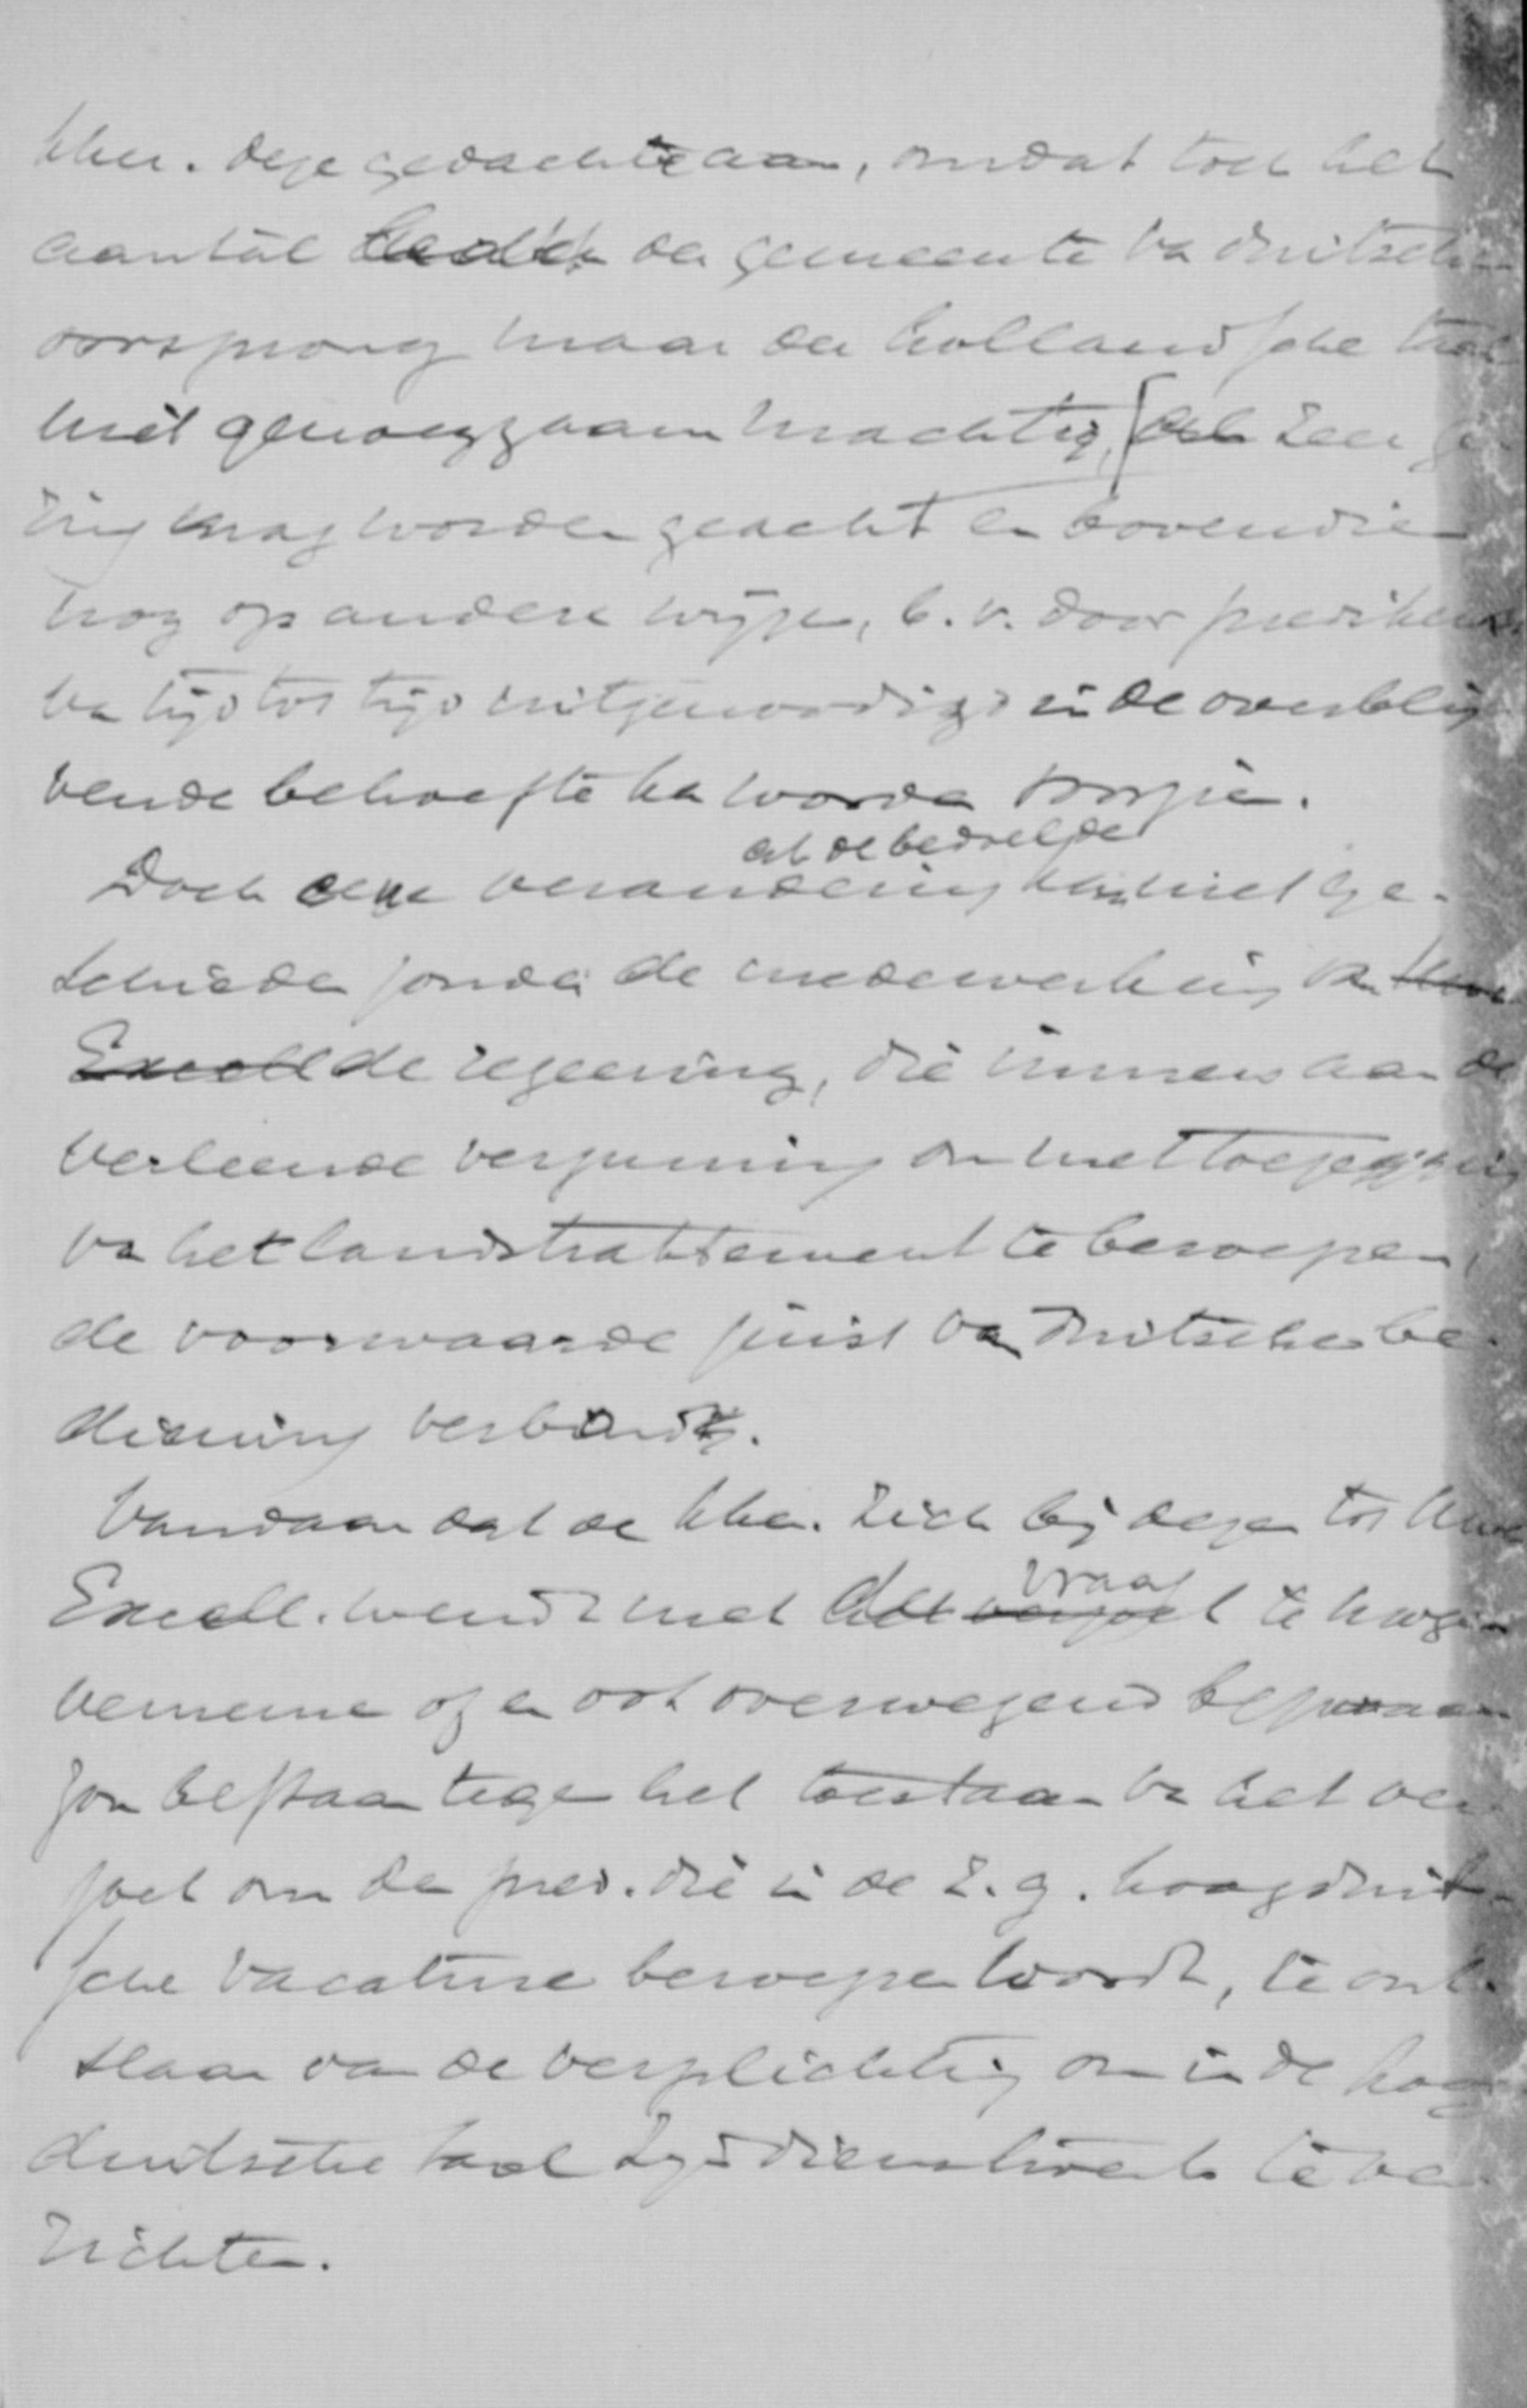 kker. deze gedachte aan, omdat toch het
aantal leden der gemeente van duitschen
oorsprong maar der hollandsche taal
niet genoegzaam machtig, zeer ge-
ring mag worden geacht en bovendien
nog op andere wijze, b.v. door predikers
van tijd tot tijd uitgenoodigd in de overblij-
vende behoefte kan worden voorzien.
als de bedoelde
Doch eene verandering kan niet ge-
schieden zonder de medewerking van Uwe
Excell de regeering, die immers aan de
verleende vergunning om met toezegging
van het landstraktement te beroepen,
de voorwaarde juist van duitsche be-
diening verbindt.
Vandaar dat de kker. zich bij dezen tot Uwe
Excell. wendt met de vraag te mogen
vernemen of er ook overwegend bezwaar
zou bestaan tegen het toestaan van het ver-
zoek om den pred. die in de z.g. hoogduit-
sche vacature beroepen wordt, te ont-
slaan van de verplichting om in de hoog
duitsche taal zijn dienstwerk te ver-
richten.